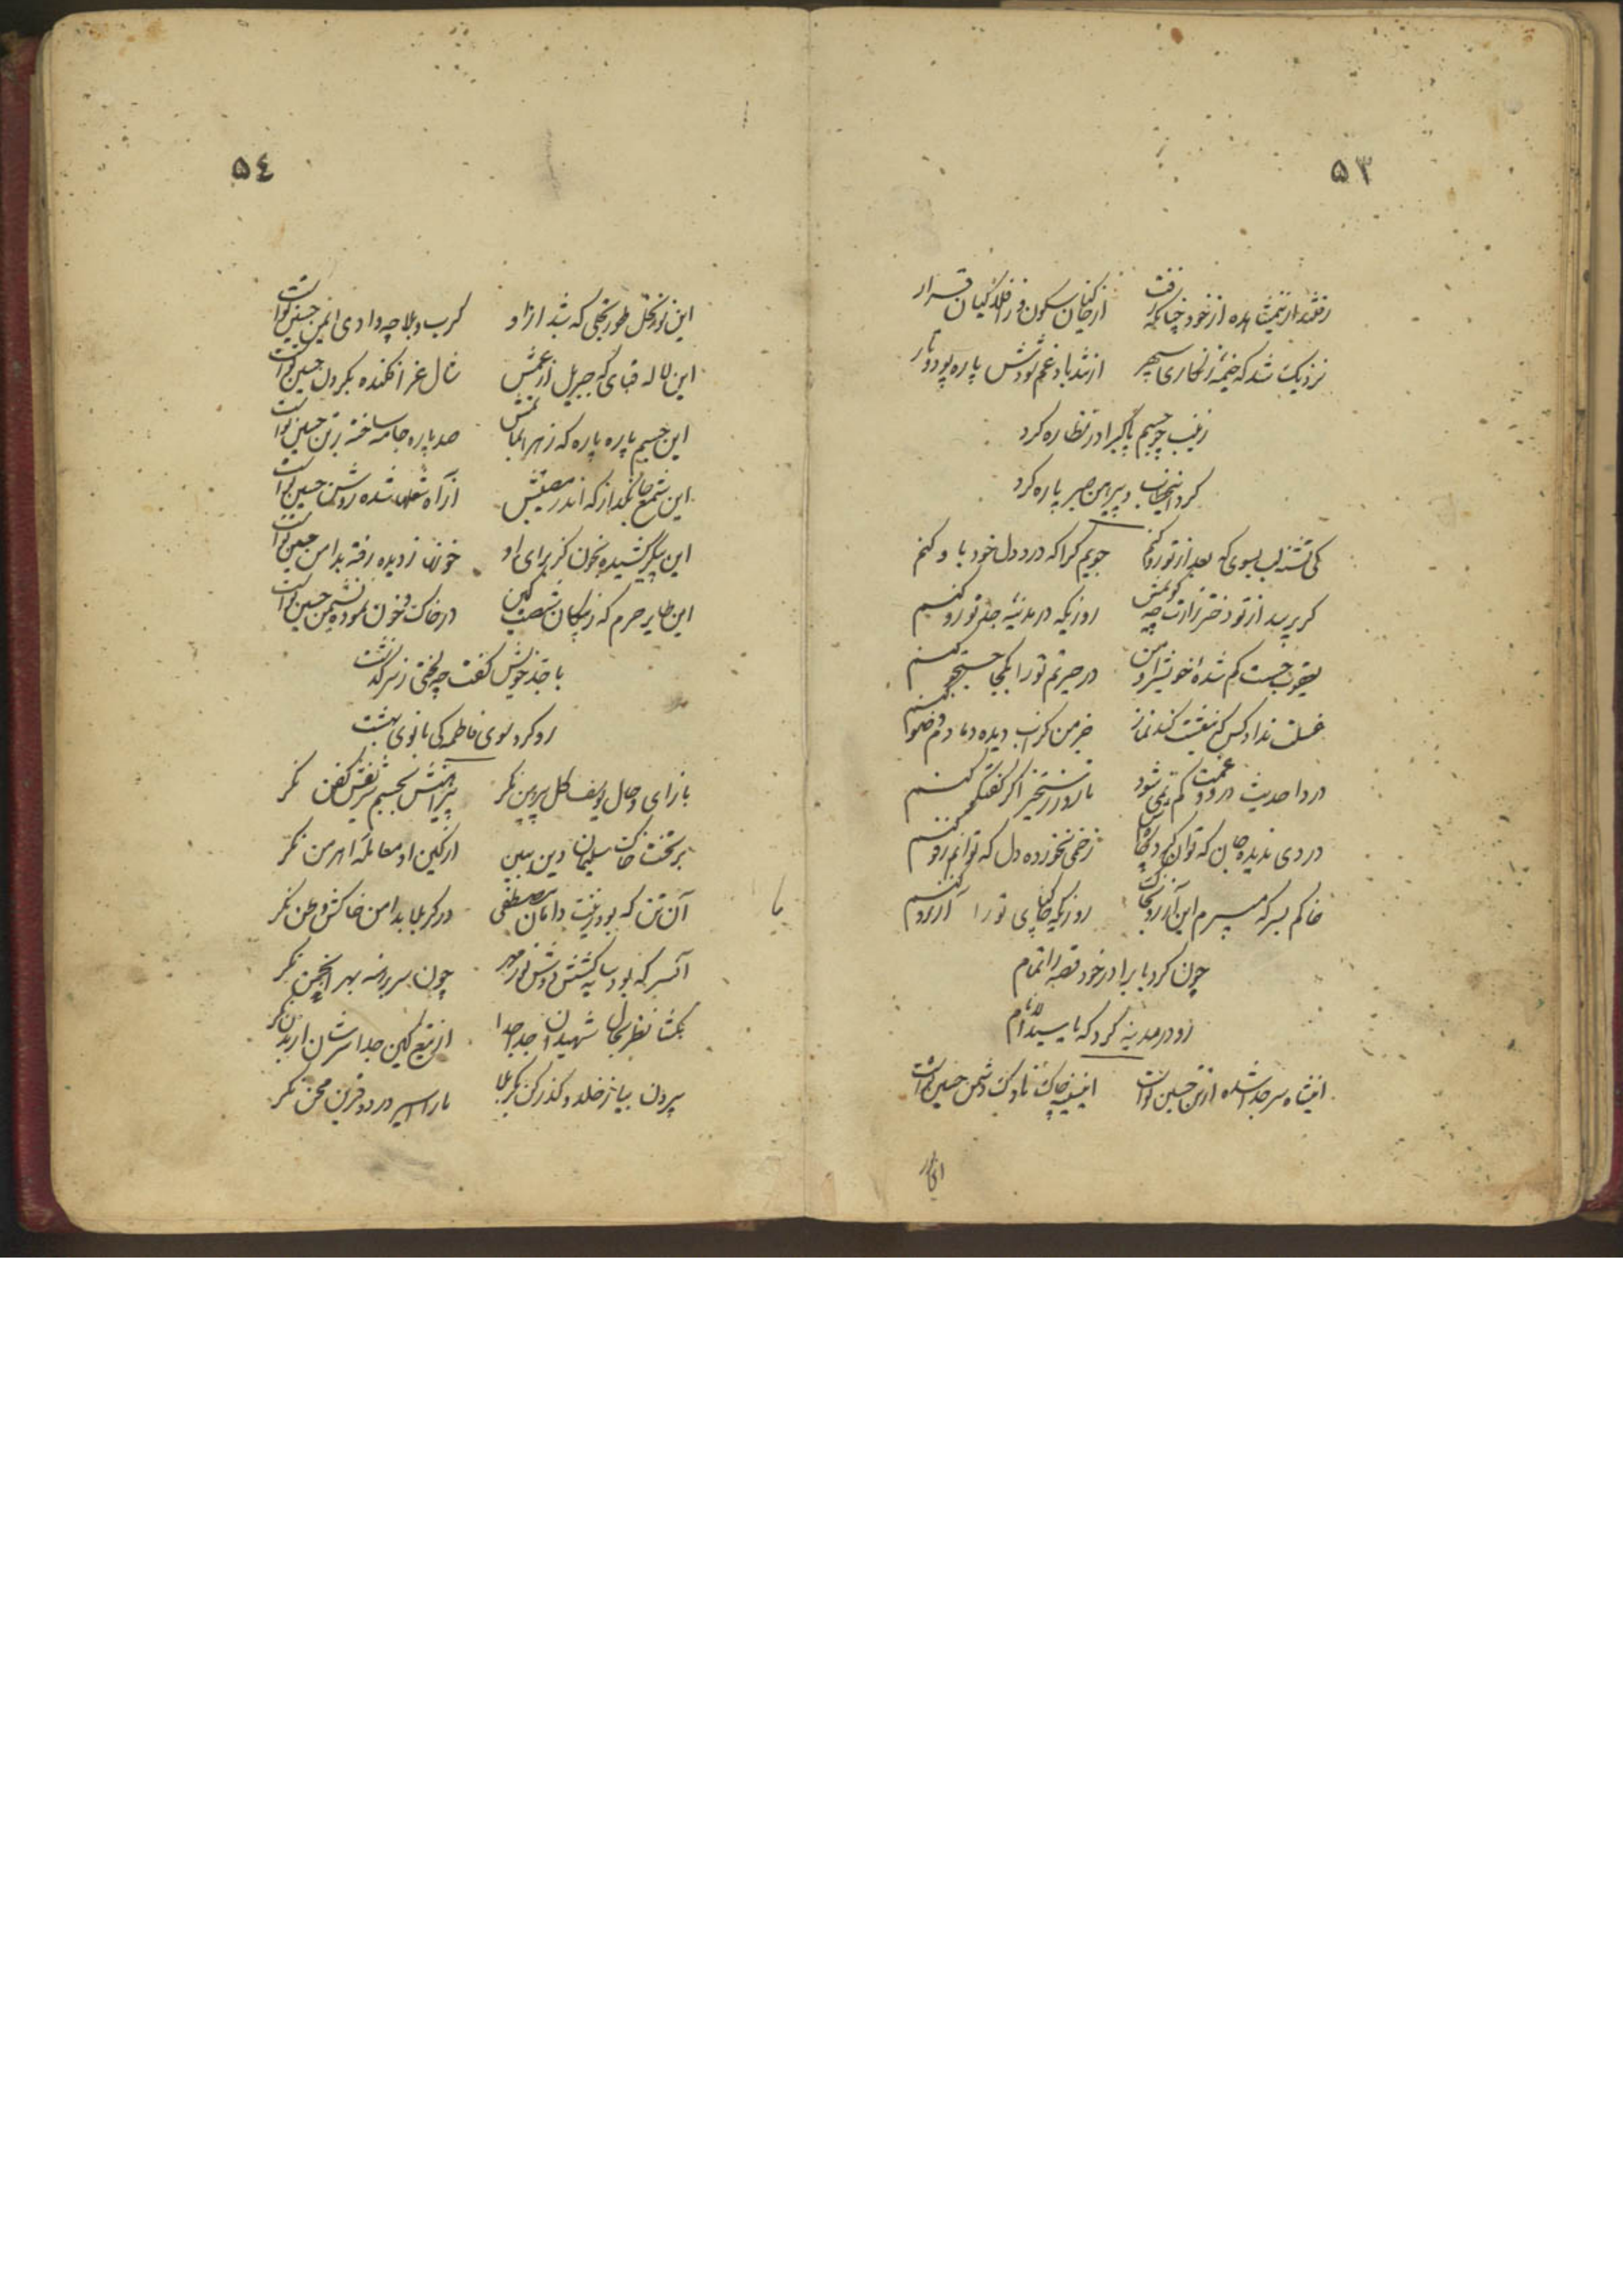 ۵۳
رفتند از مشاهده از خود چنانکه رفت از خاکیان سکون و ز افلاکیان قرار
نزدیک شد که خیمه زنگاری سپهر از تندباد غم شودش پاره پود و تار
زینب چو جسم پاک برادر نظاره کرد
کرد انتخاب و پیرهن صبر پاره کرد
کی تشنه لب بسوی که بعد از تو رو کنم جویم کرا که درد دل خود باو کنم
گر پرسد از تو دختر زارت چه گویمش روزیکه در مدینه جد تو رو کنم
یعقوب جست گم شدهٔ خویش را و من در حیرتم تو را بکجا جستجو کنم
غسلت نداد کس که بنعشت کند نماز جز من کز آب دیده دمادم وضو کنم
دردا حدیث درد و غمت کم نمی شود تا روز رستخیز اگر گفتگو کنم
دردی ندیده جان که توان کرد
زخمی نخورده دل که توانم رفو کنم
خاکم بسر که میبرم این آرزو بخاک روزیکه خاکپای تو را آرزو کنم
چون کرد با برادر خود قصه را تمام
رو در مدینه کرد که یا سید الانام
این شاه سر جدا شده از تن حسین تست این سینه چاک ناوک دشمن حسین تست
این
۵۴
این نونهل طور تجلی که شد از او کرب و بلا چه وادی ایمن حسین تست
این لاله قبای که جبریل از غمش شال عزا فکنده بگردن حسین تست
این جسم پاره پاره که زهرا صد پاره جامه ساخته بر تن حسین تست
این شمع جانگداز که اندر مصیبتش از آه شعله شده روشن حسین تست
این پیکر کشیده بخون کز برای او خونت ز دیده رفته بدامن حسین تست
این طایر حرم که ز پیکان شصت کین در خاک و خون نموده نشیمن حسین تست
با جد خویش گفت چه لختی ز سرگذشت
رو کرد سوی فاطمه کی بانوی بهشت
بازآی و حال یوسف گل پیرهن نگر پیراهنش بجسم شریفش کفن نگر
بر تخت خاک سلیمان دین ببین از کین او معامله اهرمن نگر
آن تن که بود زینت دامان مصطفی در کربلا بدامن خاکش وطن نگر
آن سر که بود چون سر برهنه بهر انجمن نگر
بگشا نظر بحال شهیدان جدا جدا از تیغ کین جدا سرشان از بدن نگر
بیرون بیا ز خلد و گذر کن بکربلا ما را اسیر درد و قرین محن نگر